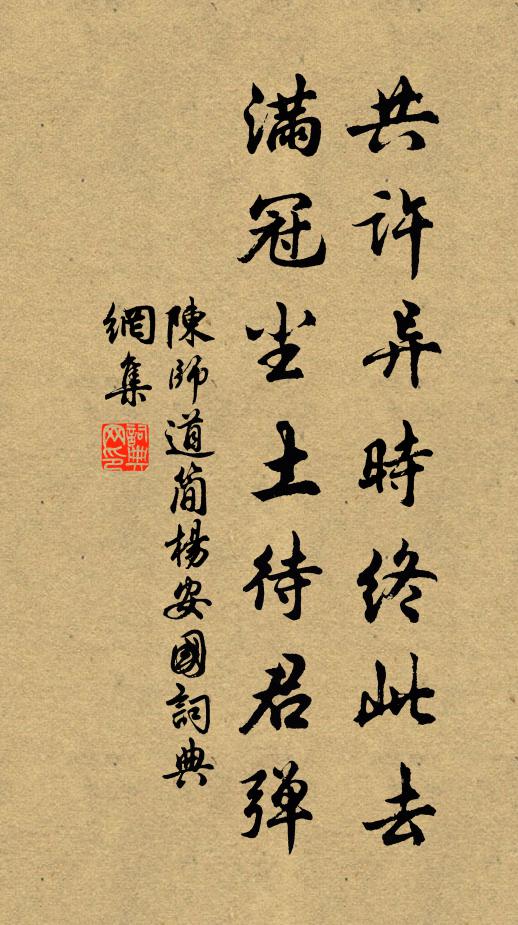 共许异時终此去
满冠尘土待君弹
陳師道简楊安國詞典
網集
詞典
网印